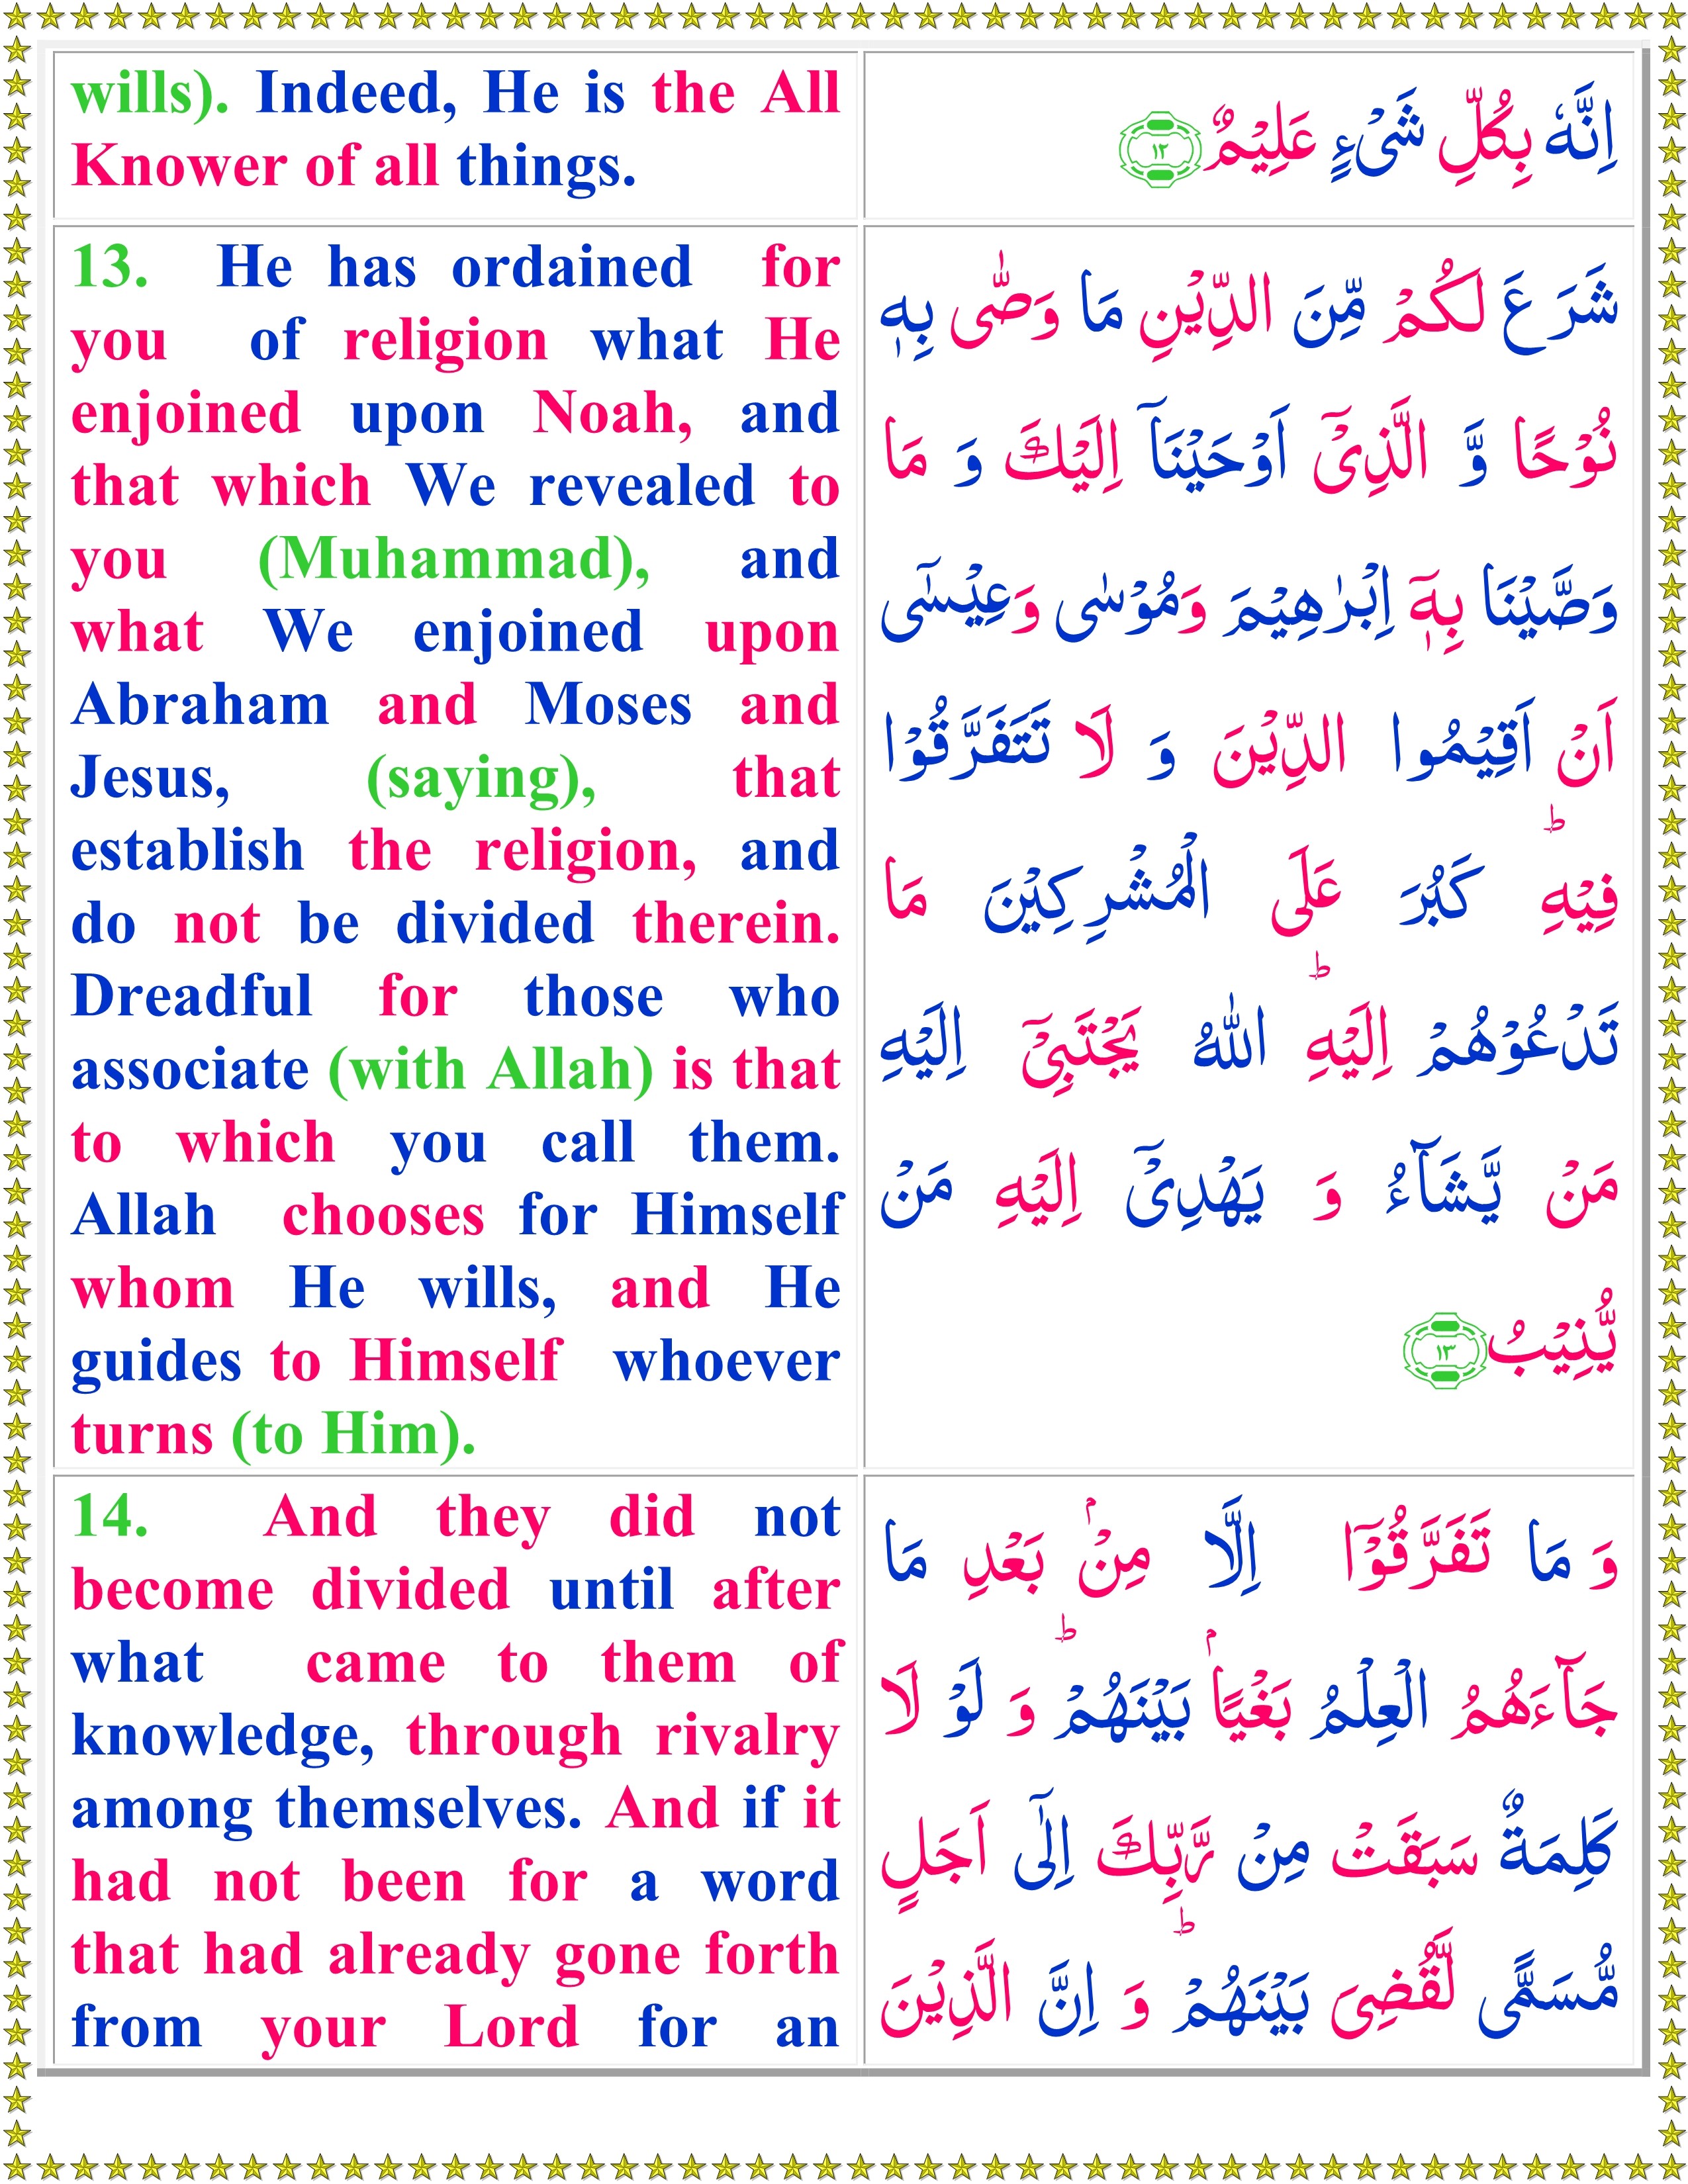 wills). Indeed, He is the All
Knower of all things.
اِنَّهٗ بِكُلِّ شَىْءٍ عَلِيْمٌ ۱۲
13. He has ordained for
you of religion what He
enjoined upon Noah, and
that which We revealed to
you (Muhammad), and
what We enjoined upon
Abraham and Moses and
Jesus, (saying), that
establish the religion, and
do not be divided therein.
Dreadful for those who
associate (with Allah) is that
to which you call them.
Allah chooses for Himself
whom He wills, and He
guides to Himself whoever
turns (to Him).
شَرَعَ لَكُمْ مِّنَ الدِّيْنِ مَا وَصّٰى بِهٖ
نُوْحًا وَّ الَّذِىْۤ اَوْحَيْنَاۤ اِلَيْكَ وَ مَا
وَصَّيْنَا بِهٖۤ اِبْرٰهِيْمَ وَمُوْسٰى وَعِيْسٰٓى
اَنْ اَقِيْمُوا الدِّيْنَ وَ لَا تَتَفَرَّقُوْا
فِيْهِ‌ؕ كَبُرَ عَلَى الْمُشْرِكِيْنَ مَا
تَدْعُوْهُمْ اِلَيْهِ‌ؕ اللّٰهُ يَجْتَبِىْۤ اِلَيْهِ
مَنْ يَّشَآءُ وَ يَهْدِىْۤ اِلَيْهِ مَنْ
يُّنِيْبُ ۱۳
14. And they did not
become divided until after
what came to them of
knowledge, through rivalry
among themselves. And if it
had not been for a word
that had already gone forth
from your Lord for an
وَ مَا تَفَرَّقُوْۤا اِلَّا مِنْۢ بَعْدِ مَا
جَآءَهُمُ الْعِلْمُ بَغْيًاۢ بَيْنَهُمْ‌ؕ وَ لَوْ لَا
كَلِمَةٌ سَبَقَتْ مِنْ رَّبِّكَ اِلٰٓى اَجَلٍ
مُّسَمًّى لَّقُضِىَ بَيْنَهُمْ‌ؕ وَ اِنَّ الَّذِيْنَ